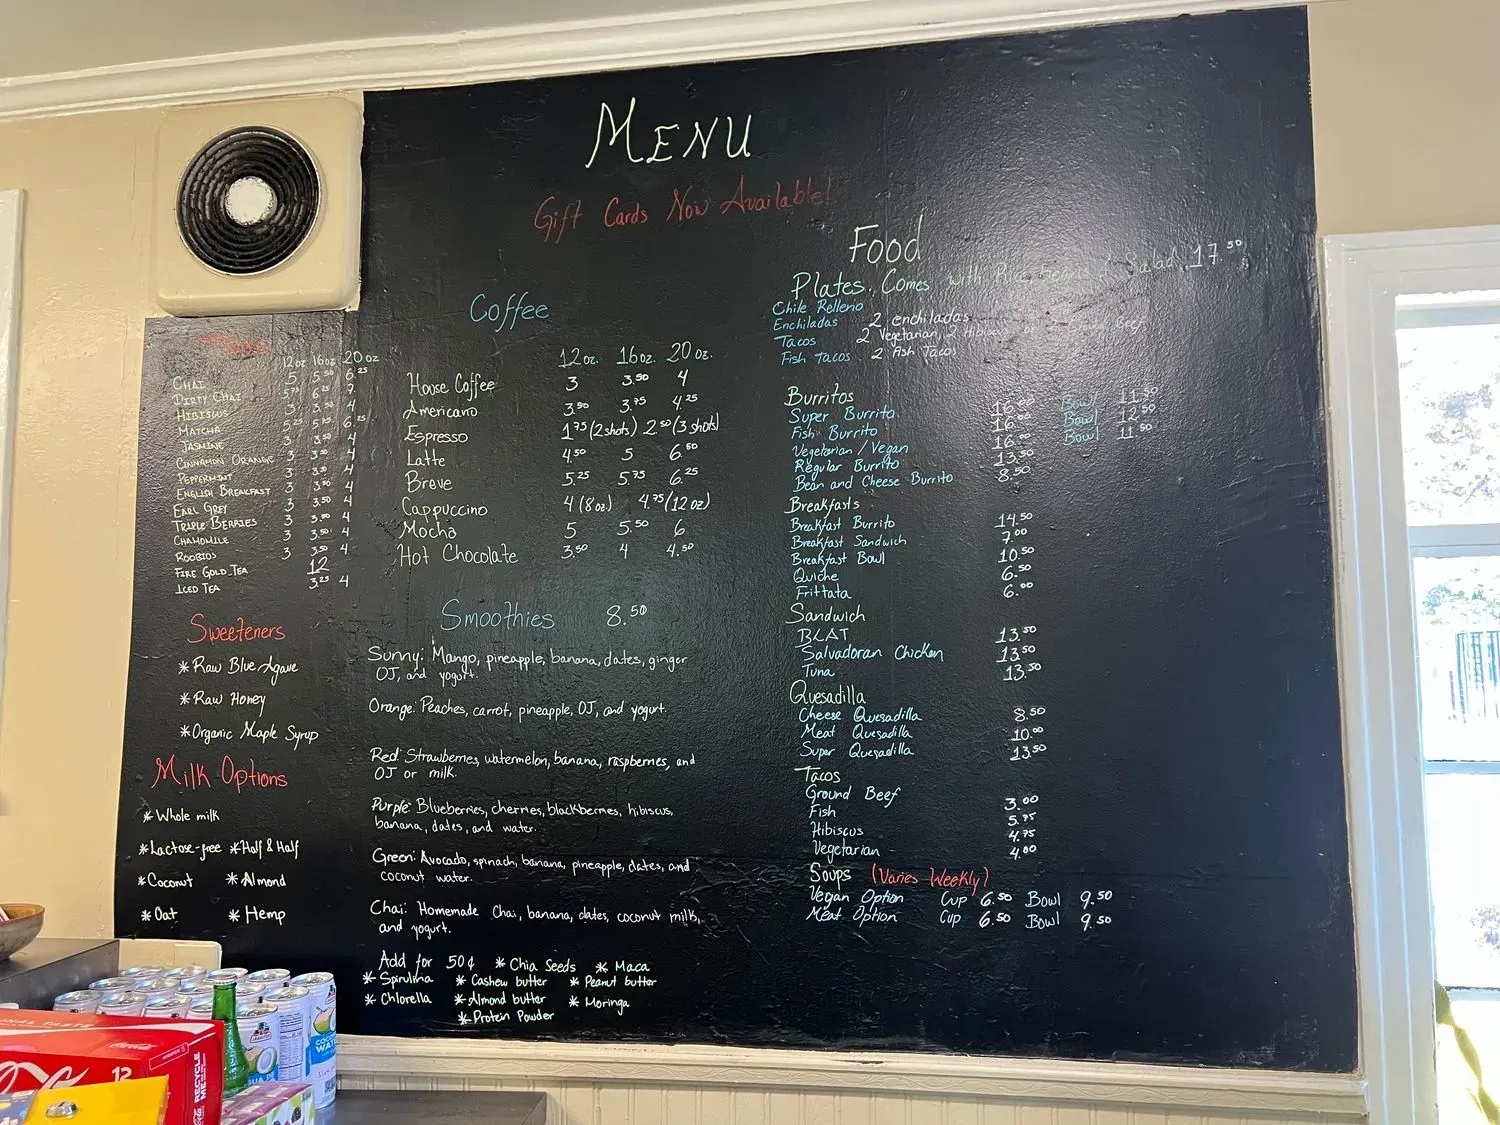 MENU
Gift Cards Now Available!
12oz 16oz 20oz
CHAI 5 5.50 6.25
DIRTY CHAI 5.75 6.25 7
HIBISCUS 3 3.50 4
MATCHA 5.25 5.75 6.25
JASMINE 3 3.50 4
CINNAMON ORANGE 3 3.50 4
PEPPERMINT 3 3.50 4
ENGLISH BREAKFAST 3 3.50 4
EARL GREY 3 3.50 4
TRIPLE BERRIES 3 3.50 4
CHAMOMILE 3 3.50 4
ROOBIOS 3 3.50 4
FIRE GOLD TEA 12
ICED TEA 3.25 4
Sweeteners
*Raw Blue Agave
*Raw Honey
*Organic Maple Syrup
Milk Options
*Whole milk
*Lactose-free *Half & Half
*Coconut *Almond
*Oat *Hemp
Coffee
12oz. 16oz. 20oz.
House Coffee 3 3.50 4
Americano 3.50 3.75 4.25
Espresso 1.75 (2 shots) 2.50 (3 shots)
Latte 4.50 5 6.50
Breve 5.25 5.75 6.25
Cappuccino 4 (8oz.) 4.75 (12oz)
Mocha 5 5.50 6
Hot Chocolate 3.50 4 4.50
Smoothies 8.50
Sunny: Mango, pineapple, banana, dates, ginger
OJ, and yogurt.
Orange: Peaches, carrot, pineapple, OJ, and yogurt.
Red: Strawberries, watermelon, banana, raspberries, and
OJ or milk.
Purple: Blueberries, cherries, blackberries, hibiscus,
banana, dates, and water.
Green: Avocado, spinach, banana, pineapple, dates, and
coconut water.
Chai: Homemade Chai, banana, dates, coconut milk,
and yogurt.
Add for 50¢ *Chia Seeds *Maca
*Spirulina *Cashew butter *Peanut butter
*Chlorella *Almond butter *Moringa
*Protein Powder
Food
Plates. Comes with Rice, beans, Salad 17.50
Chile Relleno
Enchiladas 2 enchiladas
Tacos 2 Vegetarian, 2 Hibiscus or Beef
Fish tacos 2 fish Tacos
Burritos
Super Burrito 16.00 Bowl 11.50
Fish Burrito 16.00 Bowl 12.50
Vegetarian/Vegan 16.00 Bowl 11.50
Regular Burrito 13.50
Bean and Cheese Burrito 8.50
Breakfasts
Breakfast Burrito 14.50
Breakfast Sandwich 7.00
Breakfast Bowl 10.50
Quiche 6.50
Frittata 6.00
Sandwich
BLAT 13.50
Salvadoran Chicken 13.50
Tuna 13.50
Quesadilla
Cheese Quesadilla 8.50
Meat Quesadilla 10.00
Super Quesadilla 13.50
Tacos
Ground Beef 3.00
Fish 5.75
Hibiscus 4.75
Vegetarian 4.00
Soups (Varies Weekly)
Vegan Option Cup 6.50 Bowl 9.50
Meat Option Cup 6.50 Bowl 9.50
COCO
WAT
Coca-Cola
12
RECYCLE
ME